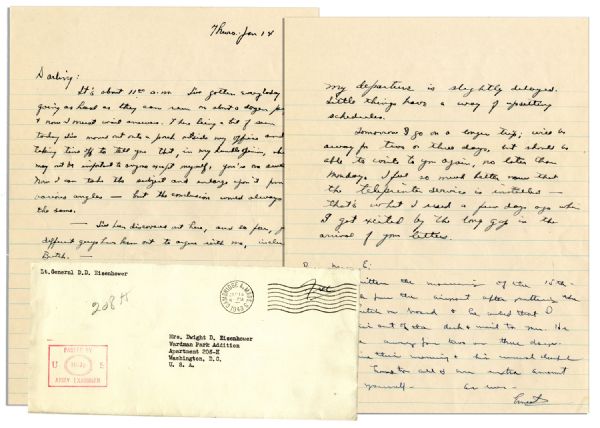 Thurs. Jan 14
Darling:
It's about 11:00 a.m. I've gotten everybody
going as hard as they can run on about a dozen
& now I must wait answers. There being a bit of sun
today I've moved out onto a porch outside my office and
taking time off to tell you that, in my humble opinion,
may not be important to anyone except myself, you're
Now I can take the subject and enlarge upon it from
various angles — but the conclusion would always
the same.
— I've been discovered out here, and so far,
different guys have been out to argue with me,
Butch. —
My departure is slightly delayed.
Little things have a way of upsetting
schedules.
Tomorrow I go on a longer trip; will be
away for two or three days, but should be
able to write to you again, no later than
Monday. I feel so much better now that
the teleprinter service is installed —
that's what I used a few days ago when
I got excited by the long gap in the
arrival of your letters.
written the morning of the 15th
the airport after putting the
on board & he asked that I
out of the desk & mail to you. He
away for two or three days.
this morning & his usual
yourself — As ever —
Ernest
Lt.General D.D. Eisenhower
208 H
CAMBRIDGE A, MASS.
1943
Free
Mrs. Dwight D. Eisenhower
Wardman Park Addition
Apartment 208-H
Washington, D.C.
U. S. A.
PASSED BY
U S
ARMY EXAMINER